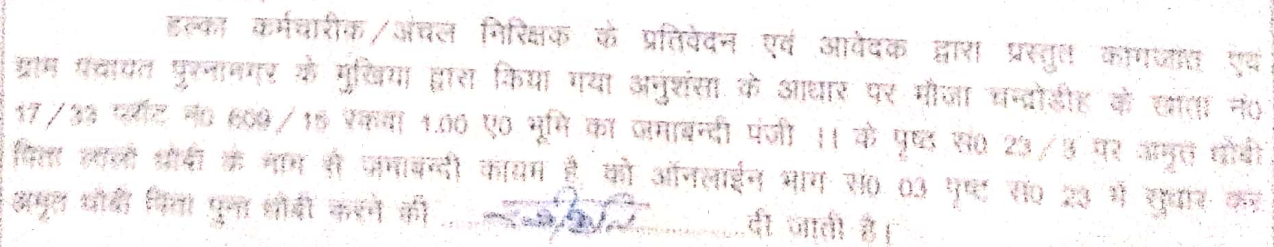 हल्का कर्मचारीक/अंचल निरिक्षक के प्रतिवेदन एवं आवेदक द्वारा प्रस्तुत कागजात एवं
ग्राम पंचायत पुरनानगर के मुखिया द्वारा किया गया अनुशंसा के आधार पर मौजा चन्द्रोडीह के खाता नं०
17/33 प्लॉट नं० 609/15 रकवा 1.00 ए० भूमि का जमाबन्दी पंजी ।। के पृष्ट सं० 23/5 पर अमृत धोबी
पिता लालो धोबी के नाम से जमाबन्दी कायम है को ऑनलाईन भाग सं० 03 पृष्ट सं० 23 में सुधार कर
अमृत धोबी पिता पुना धोबी करने की दी जाती है।